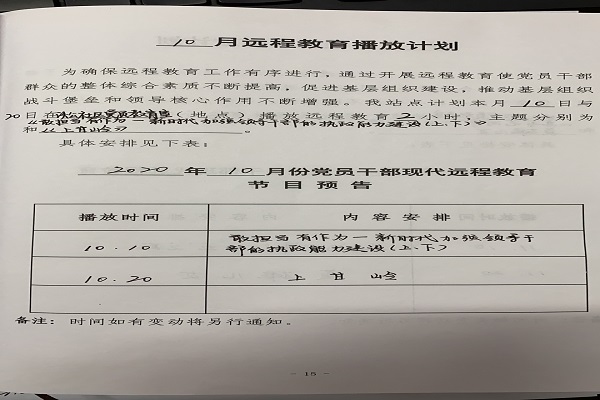 10 月远程教育播放计划
为确保远程教育工作有序进行，通过开展远程教育使党员干部
群众的整体综合素质不断提高，促进基层组织建设，推动基层组织
战斗堡垒和领导核心作用不断增强。我站点计划本月 10 日与
20 日在 教育室（地点）播放远程教育 2 小时，主题分别为
《敢担当有作为一新时代加强领导干部的执政能力建设（上、下）》
和《上甘岭》。
具体安排见下表：
2020 年 10 月份党员干部现代远程教育
节目预告
播放时间 内容安排
10.10 敢担当有作为一新时代加强领导干
部的执政能力建设（上、下）
10.20 上甘岭
备注：时间如有变动将另行通知。
- 15 -